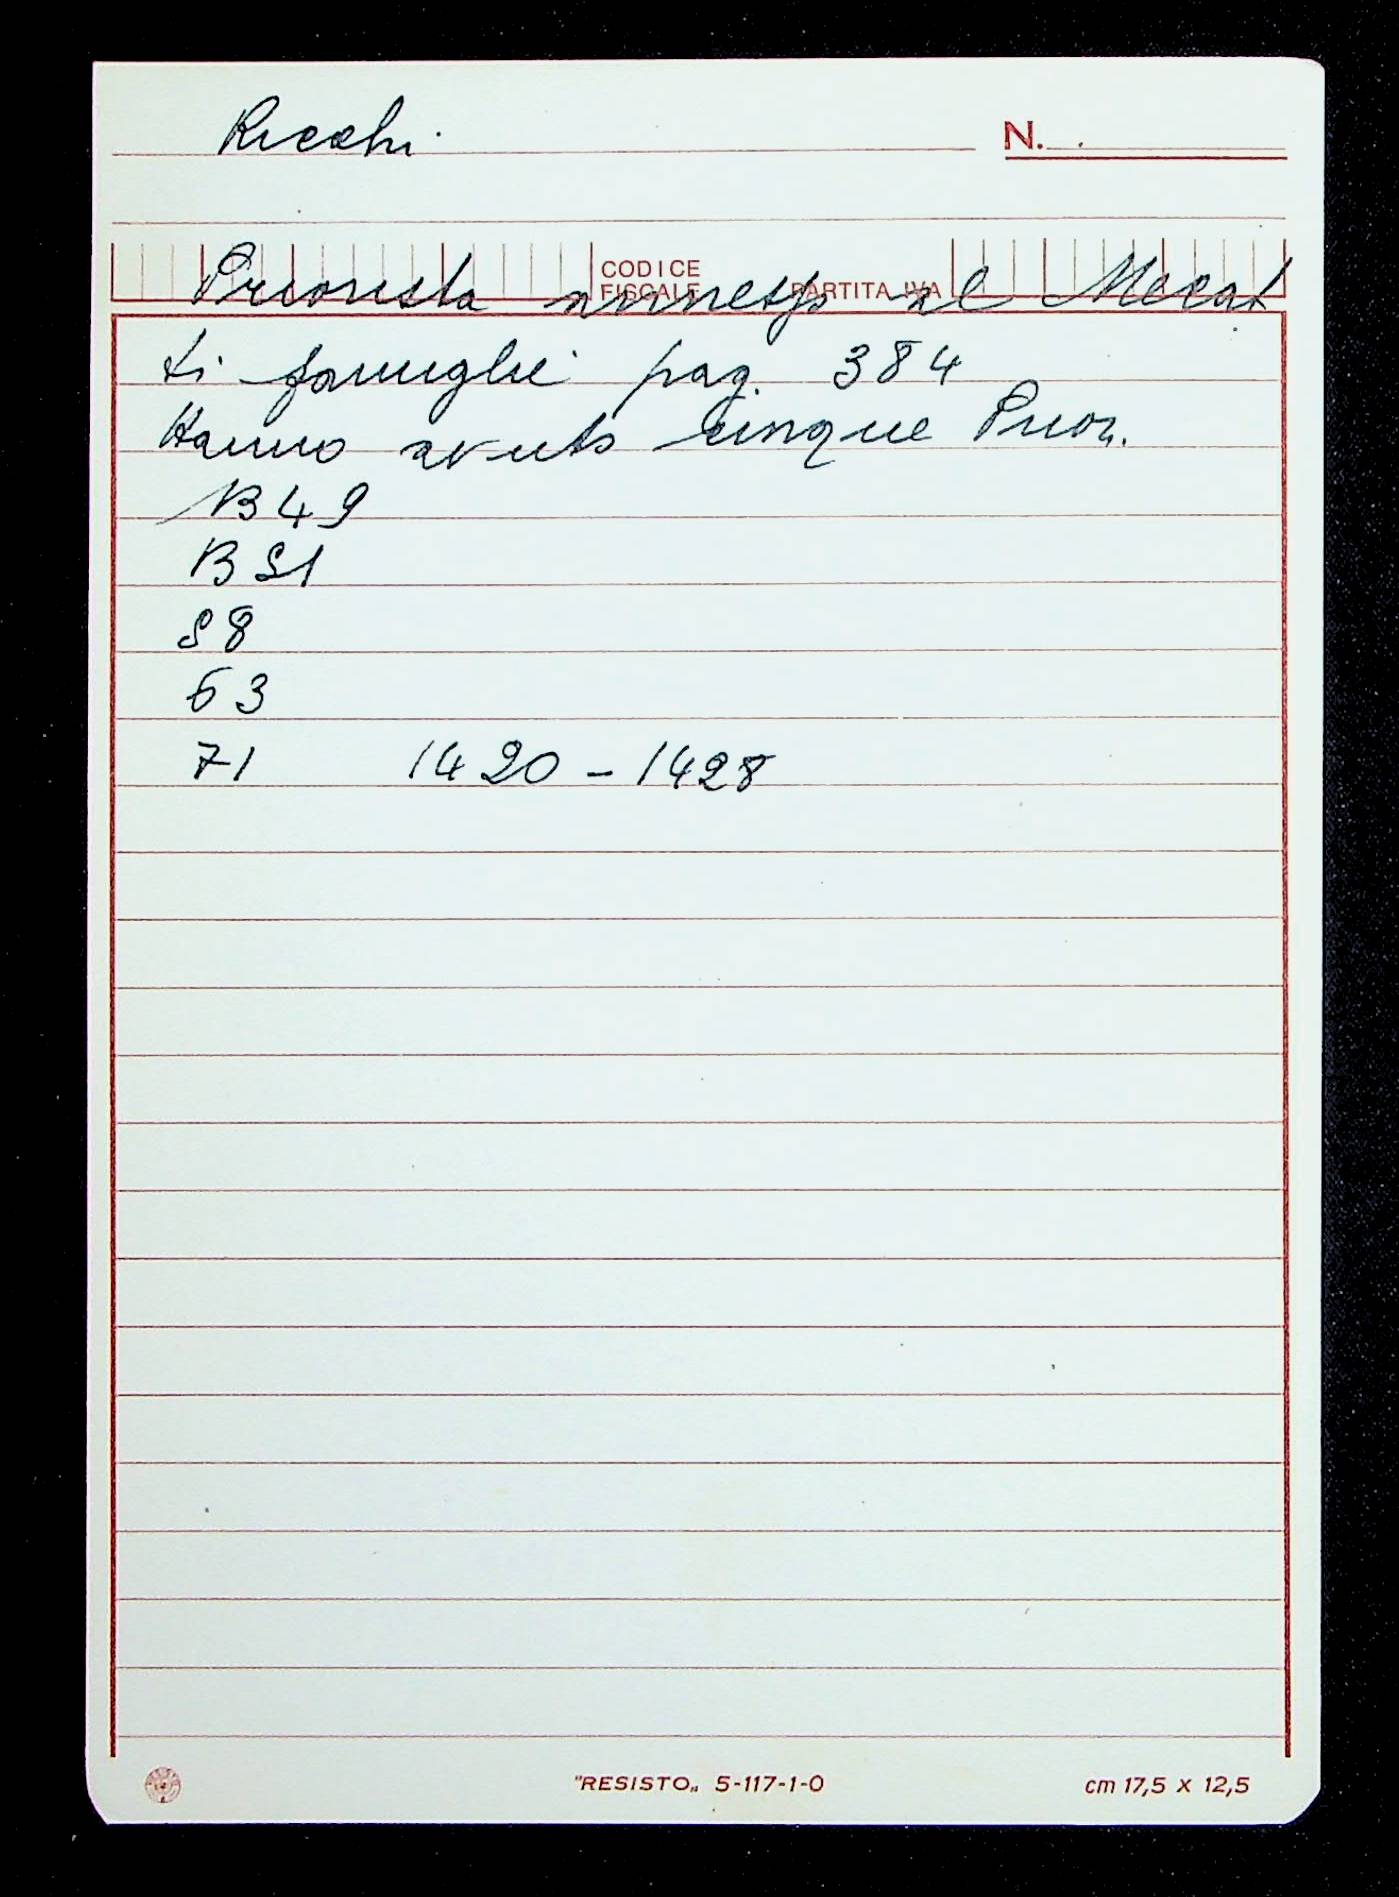 Ricchi
N.
CODICE
FISCALE
PARTITA IVA
Priorista annesso al Mecat
ti famiglie pag. 384
Hanno avuto cinque Prior.
1349
1351
58
63
71 1420 - 1428
"RESISTO„ 5-117-1-0
cm 17,5 x 12,5